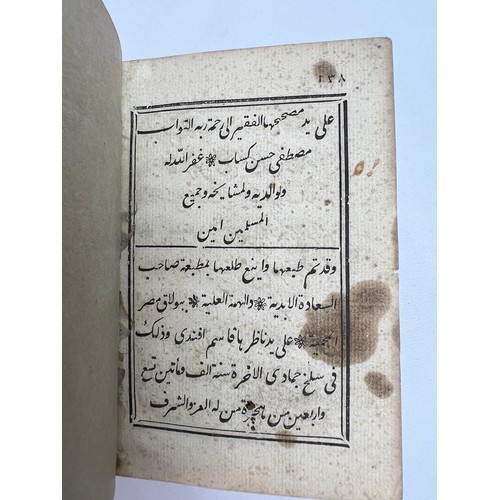 ١٣٨
على يد مصححها الفقير الى رحمة ربه التواب
مصطفى حسن كساب ❋ غفر الله له
ولوالديه ولمشايخه وجميع
المسلمين امين
وقد تم طبعها واينع طلعها بمطبعة صاحب
السعادة الابدية ❋ والهمة العلية ❋ ببولاق مصر
المحمية ❋ على يد ناظرها قاسم افندى وذلك
فى سلخ جمادى الاخرة سنة الف ومأتين تسع
واربعين من هجرة من له العز والشرف